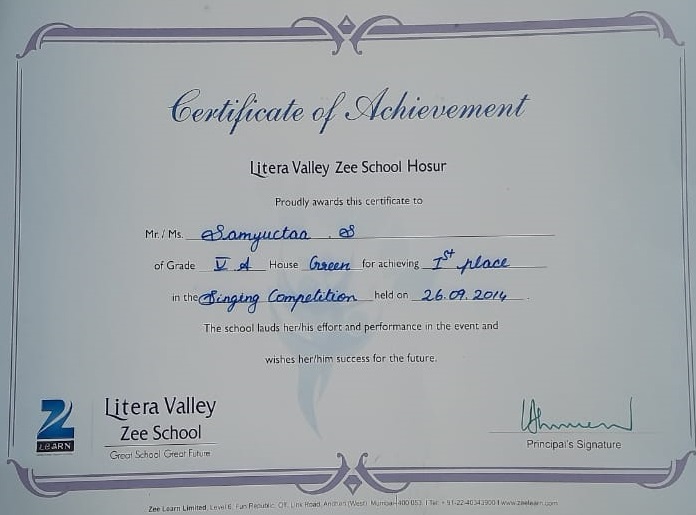 Certificate of Achievement
Litera Valley Zee School Hosur
Proudly awards this certificate to
Mr. / Ms. Samyuctaa . S
of Grade V A House Green for achieving Ist place
in the Singing Competition held on 26.09.2014 .
The school lauds her/his effort and performance in the event and
wishes her/him success for the future.
Z
LEARN
Litera Valley
Zee School
Great School Great Future
Principal's Signature
Zee Learn Limited, Level 6, Fun Republic, Off. Link Road, Andheri (West) Mumbai-400 053. I Tel: + 91-22-40343900 I www.zeelearn.com